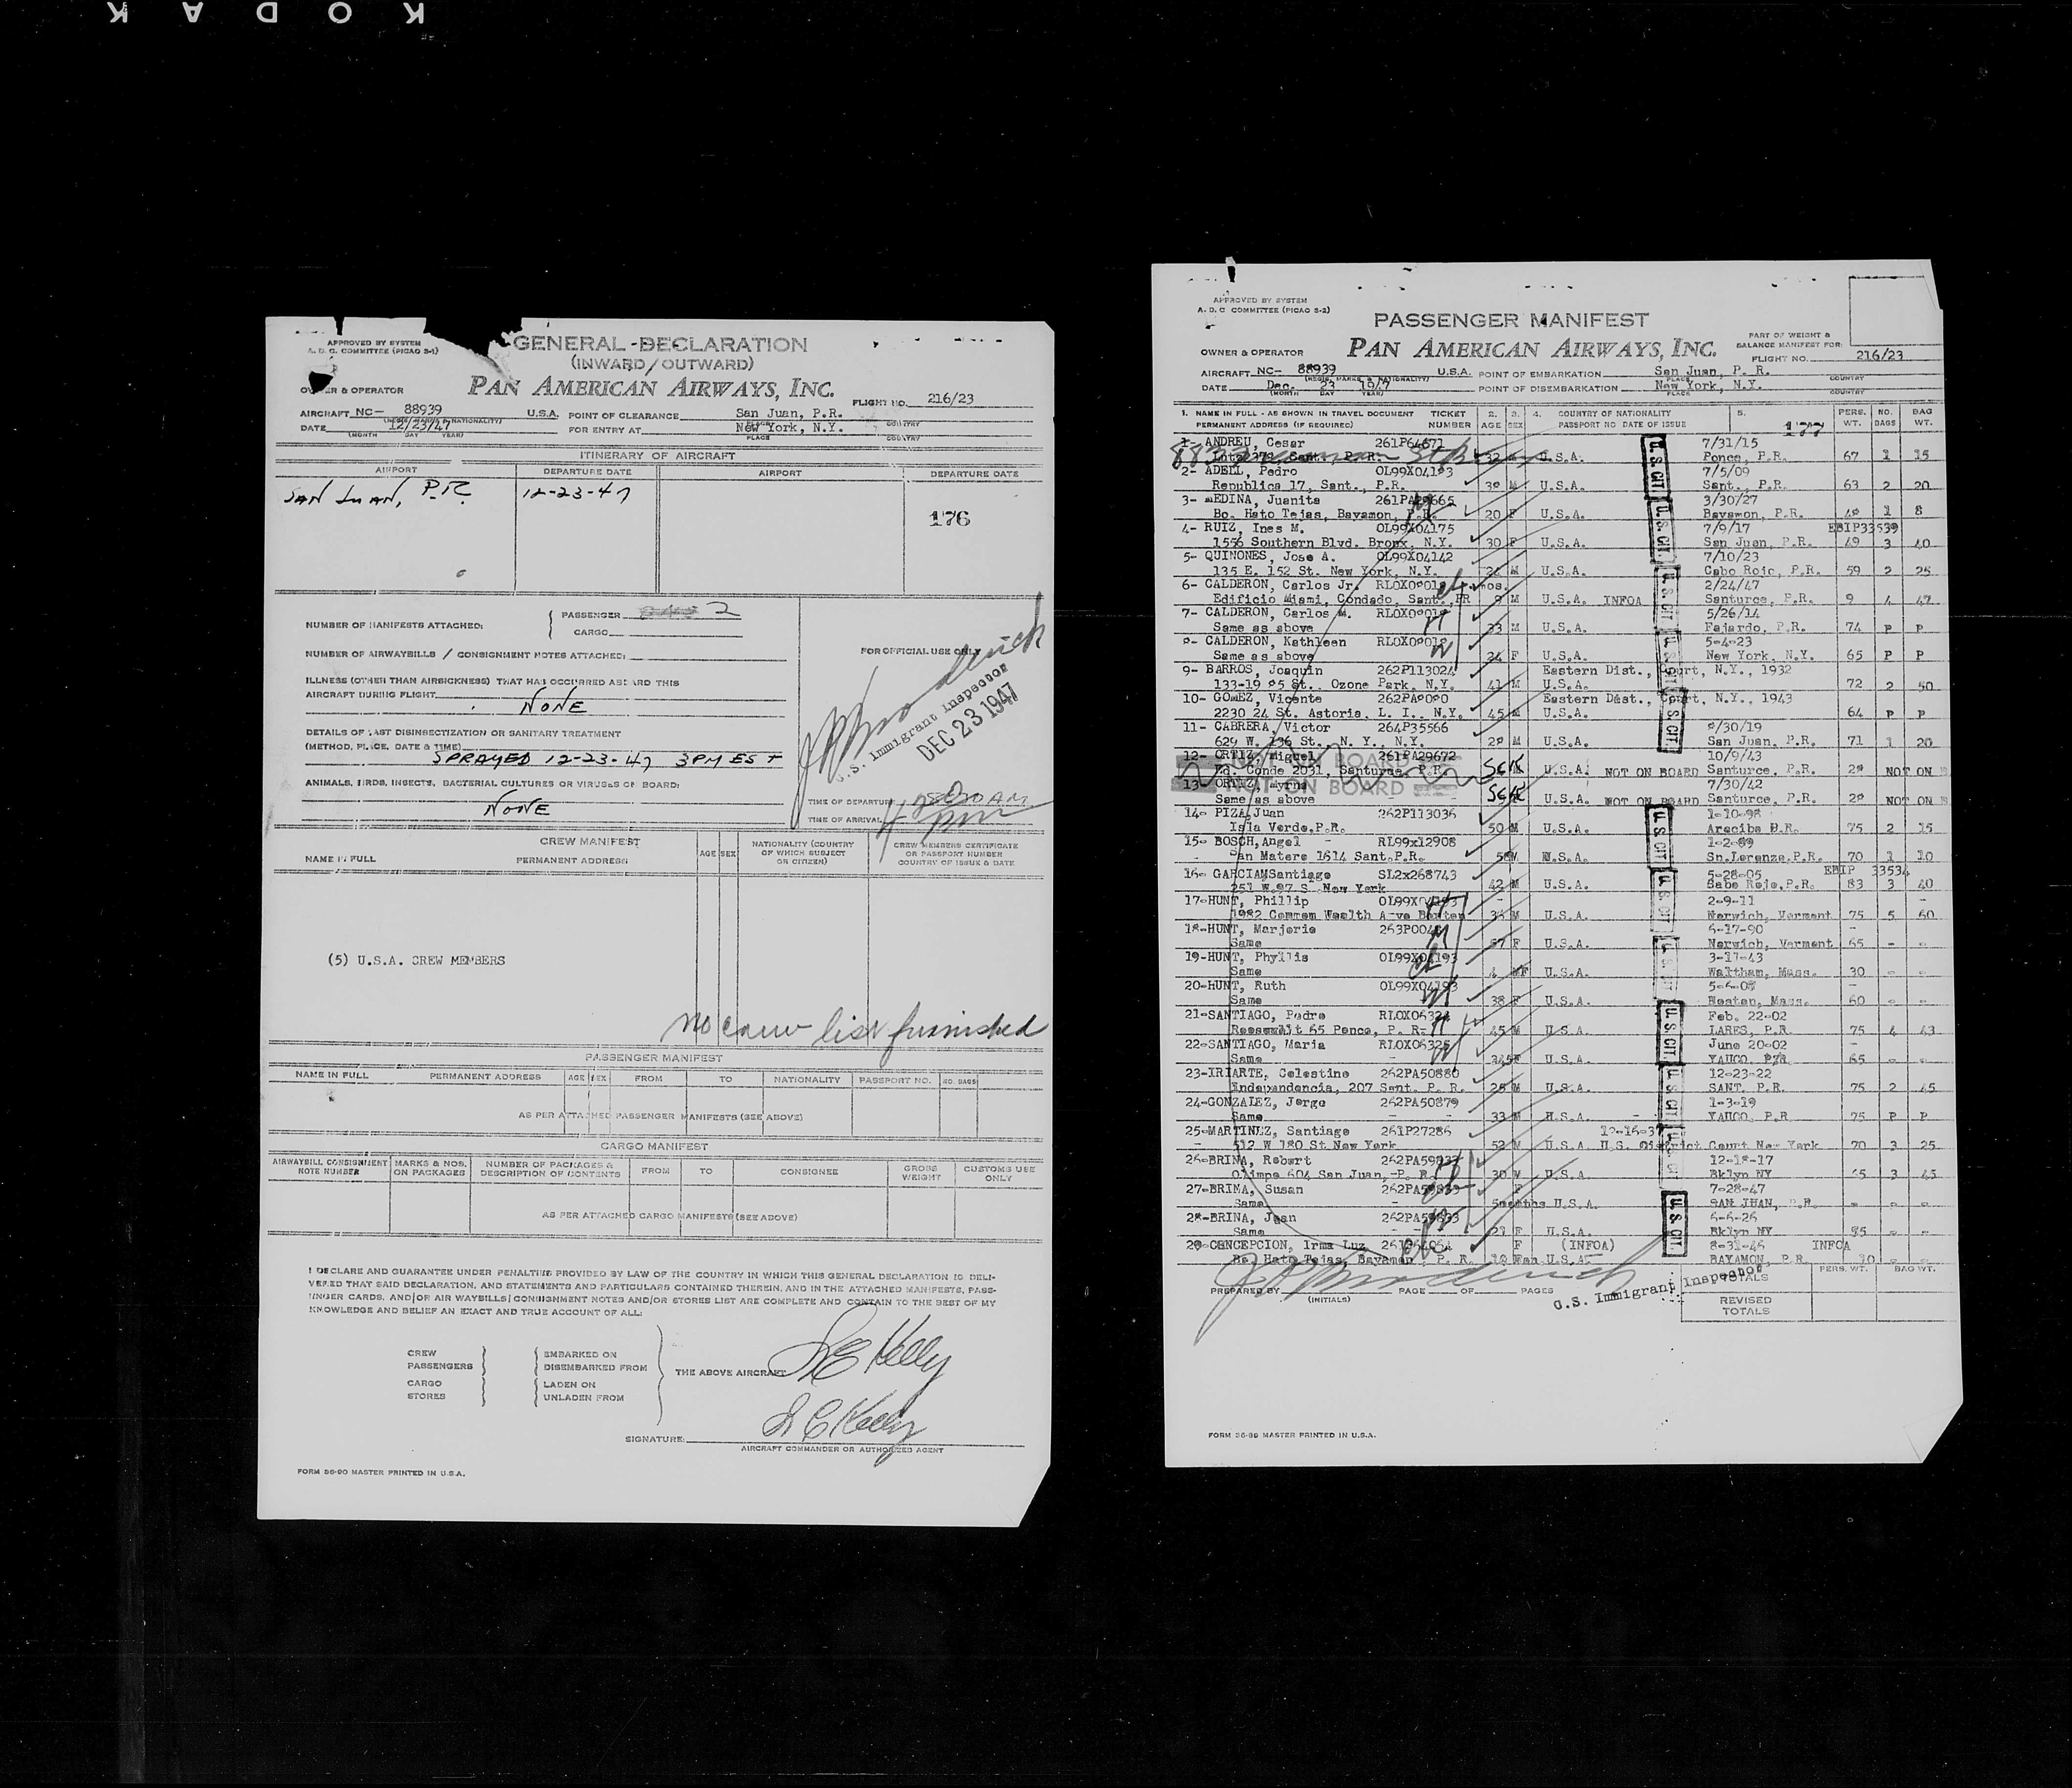 KODAK
APPROVED BY SYSTEM
A. D. C. COMMITTEE (PICAO S-1)
GENERAL DECLARATION
(INWARD/OUTWARD)
OWNER & OPERATOR
PAN AMERICAN AIRWAYS, INC.
FLIGHT NO. 216/23
AIRCRAFT NC- 88939 U.S.A. POINT OF CLEARANCE San Juan, P.R.
(REGIS. MARKS & NATIONALITY) PLACE COUNTRY
DATE 12/23/47 FOR ENTRY AT New York, N.Y.
(MONTH DAY YEAR) PLACE COUNTRY
ITINERARY OF AIRCRAFT
AIRPORT DEPARTURE DATE AIRPORT DEPARTURE DATE
SAN JUAN, P.R. 12-23-47
176
NUMBER OF MANIFESTS ATTACHED: PASSENGER 2
CARGO
NUMBER OF AIRWAYBILLS / CONSIGNMENT NOTES ATTACHED:
ILLNESS (OTHER THAN AIRSICKNESS) THAT HAS OCCURRED ABOARD THIS
AIRCRAFT DURING FLIGHT
NONE
DETAILS OF LAST DISINSECTIZATION OR SANITARY TREATMENT
(METHOD, PLACE, DATE & TIME)
SPRAYED 12-23-47 3PM EST
ANIMALS, BIRDS, INSECTS, BACTERIAL CULTURES OR VIRUSES ON BOARD:
NONE
FOR OFFICIAL USE ONLY
U.S. Immigrant Inspector
DEC 23 1947
TIME OF DEPARTURE
TIME OF ARRIVAL
CREW MANIFEST
NAME IN FULL PERMANENT ADDRESS AGE SEX NATIONALITY (COUNTRY OF WHICH SUBJECT OR CITIZEN) CREW MEMBERS CERTIFICATE OR PASSPORT NUMBER COUNTRY OF ISSUE & DATE
(5) U.S.A. CREW MEMBERS
No crew list furnished
PASSENGER MANIFEST
NAME IN FULL PERMANENT ADDRESS AGE SEX FROM TO NATIONALITY PASSPORT NO. NO. BAGS
AS PER ATTACHED PASSENGER MANIFESTS (SEE ABOVE)
CARGO MANIFEST
AIRWAYBILL CONSIGNMENT NOTE NUMBER MARKS & NOS. ON PACKAGES NUMBER OF PACKAGES & DESCRIPTION OF CONTENTS FROM TO CONSIGNEE GROSS WEIGHT CUSTOMS USE ONLY
AS PER ATTACHED CARGO MANIFESTS (SEE ABOVE)
I DECLARE AND GUARANTEE UNDER PENALTIES PROVIDED BY LAW OF THE COUNTRY IN WHICH THIS GENERAL DECLARATION IS DELI-
VERED THAT SAID DECLARATION, AND STATEMENTS AND PARTICULARS CONTAINED THEREIN, AND IN THE ATTACHED MANIFESTS, PASS-
ENGER CARDS, AND/OR AIR WAYBILLS/CONSIGNMENT NOTES AND/OR STORES LIST ARE COMPLETE AND CONTAIN TO THE BEST OF MY
KNOWLEDGE AND BELIEF AN EXACT AND TRUE ACCOUNT OF ALL:
CREW EMBARKED ON
PASSENGERS DISEMBARKED FROM THE ABOVE AIRCRAFT
CARGO LADEN ON
STORES UNLADEN FROM
Kelly
SIGNATURE: Kelly
AIRCRAFT COMMANDER OR AUTHORIZED AGENT
FORM 36-90 MASTER PRINTED IN U.S.A.
APPROVED BY SYSTEM
A. D. C. COMMITTEE (PICAO S-2)
PASSENGER MANIFEST
PART OF WEIGHT &
BALANCE MANIFEST FOR:
OWNER & OPERATOR PAN AMERICAN AIRWAYS, INC. FLIGHT NO. 216/23
AIRCRAFT NC- 88939 U.S.A. POINT OF EMBARKATION San Juan, P. R.
DATE Dec. 23 1947 POINT OF DISEMBARKATION New York, N.Y.
(MONTH DAY YEAR) PLACE COUNTRY
1. NAME IN FULL - AS SHOWN IN TRAVEL DOCUMENT TICKET 2. 3. 4. COUNTRY OF NATIONALITY 5. PERS. NO. BAG
PERMANENT ADDRESS (IF REQUIRED) NUMBER AGE SEX PASSPORT NO DATE OF ISSUE 177 WT. BAGS WT.
1- ANDREU, Cesar 261P64671 7/31/15
32 U.S.A. Ponce, P.R. 67 1 15
2- ADELL, Pedro OL99X04193 7/5/09
Republica 17, Sant., P.R. 38 M U.S.A. Sant., P.R. 63 2 20
3- MEDINA, Juanita 3/30/27
Bo. Hato Tejas, Bayamon, P.R. 20 F U.S.A. Bayamon, P.R. 1 8
4- RUIZ, Ines M. OL99X04175 7/9/17 EBIP33539
1556 Southern Blvd. Bronx, N.Y. 30 F U.S.A. San Juan, P.R. 49 3 40
5- QUINONES, Jose A. OL99X04142 7/10/23
135 E. 152 St. New York, N.Y. 24 M U.S.A. Cabo Rojo, P.R. 59 2 25
6- CALDERON, Carlos Jr. mos. 2/24/47
Edificio Miami, Condado, Sant., PR 9 M U.S.A. INFOA Santurce, P.R. 9 4 47
7- CALDERON, Carlos M. 5/26/14
Same as above 33 M U.S.A. Fajardo, P.R. 74 P P
8- CALDERON, Kathleen 5-4-23
Same as above 24 F U.S.A. New York, N.Y. 65 P P
9- BARROS, Joaquin 262P113024 Eastern Dist., Court, N.Y., 1932
133-19 85 St., Ozone Park, N.Y. 41 M U.S.A. 72 2 50
10- GOMEZ, Vicente Eastern Dist., Court, N.Y., 1943
2230 24 St. Astoria, L. I., N.Y. 45 M U.S.A. 64 P P
11- CABRERA, Victor 264P35566 8/30/19
629 W. 136 St., N. Y., N.Y. 28 M U.S.A. San Juan, P.R. 71 1 20
12- ORTIZ, Miguel 261PA29672 10/9/43
Ed. Conde 2031, Santurce, P.R. U.S.A. NOT ON BOARD Santurce, P.R. 28 NOT ON
13- ORTIZ, Myrna NOT ON BOARD 7/30/42
Same as above U.S.A. NOT ON BOARD Santurce, P.R. 28 NOT ON
14- PIZA, Juan 262P113036 1-10-98
Isla Verde, P.R. 50 M U.S.A. 75 2 15
15- BOSCH, Angel RL99x12908 1-2-89
San Matero 1614 Sant. P.R. 58 U.S.A. Sn. Lorenzo, P.R. 70 1 10
16- GARCIAMSantiago SL2x268743 5-28-05 EBIP 33534
251 W. 97 S New York 42 M U.S.A. Sabo Rojo, P.R. 83 3 40
17-HUNT, Phillip 2-9-11
1982 Common Wealth A-ve Boston M U.S.A. Norwich, Vermont 75 5 60
18-HUNT, Marjorie 6-17-90
Same 57 F U.S.A. Norwich, Vermont 65 - -
19-HUNT, Phyllis OL99X04193 3-17-43
Same 4 U.S.A. Waltham, Mass. 30 - -
20-HUNT, Ruth OL99X04193
Same 38 F U.S.A. Boston, Mass. 60 - -
21-SANTIAGO, Pedro Feb. 22-02
Roosevelt 65 Ponce, P. R. 45 M U.S.A. LARES, P.R. 75 4 43
22-SANTIAGO, Maria RLOX06325 June 20-02
Same U.S.A. YAUCO, P.R. 65 - -
23-IRIARTE, Celestino 262PA50880 12-23-22
Independencia, 207 Sant. P. R. 25 M U.S.A. SANT. P.R. 75 2 45
24-GONZALEZ, Jorge 262PA50879 1-3-19
Same 33 M U.S.A. YAUCO, P.R 75 P P
25-MARTINEZ, Santiago 261P27286
512 W 180 St New York 52 M U.S.A. U.S. District Court New York 70 3 25
26-BRINA, Robert 12-18-17
Olimpo 604 San Juan, P. R. 30 M U.S.A. Bklyn NY 65 3 45
27-BRINA, Susan F 7-28-47
Same 5months U.S.A. SAN JUAN, P.R. - - -
28-BRINA, Jean 6-6-26
Same 21 F U.S.A. Bklyn NY - -
29-CONCEPCION, Irma Luz F (INFOA) 8-31-46 INFOA
Bo. Hato Tejas, Bayamon, P. R. U.S.A. BAYAMON, P.R. 10 -
U.S. CIT.
PREPARED BY (INITIALS) PAGE OF PAGES
U.S. Immigrant Inspector
TOTALS PERS. WT. BAG WT.
REVISED
TOTALS
FORM 36-89 MASTER PRINTED IN U.S.A.